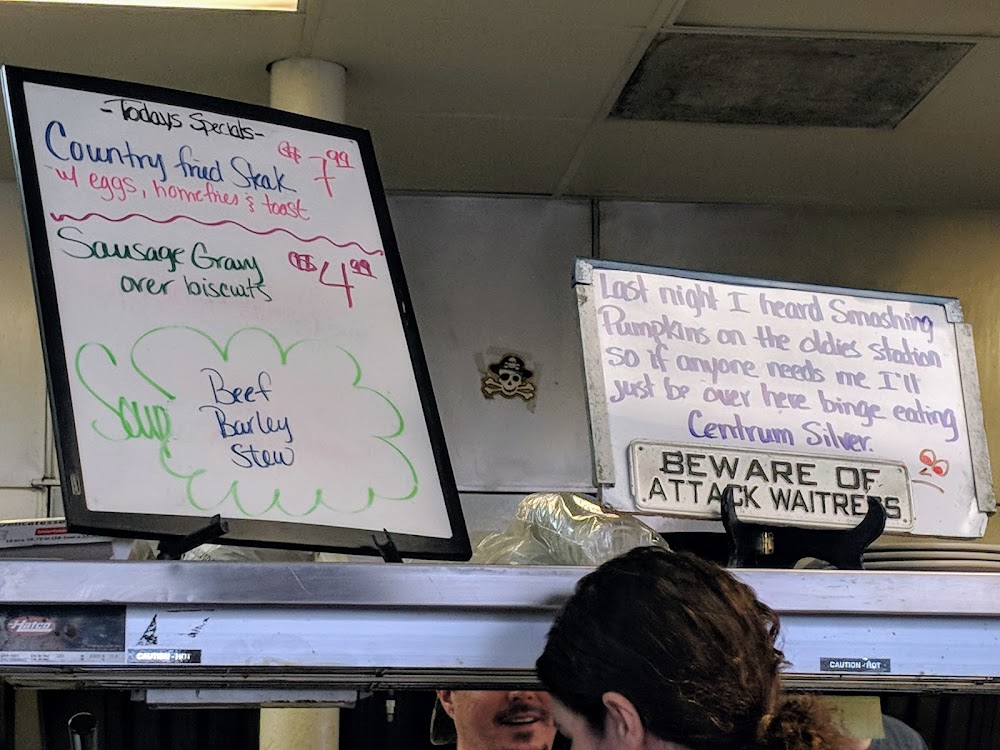 -Todays Specials-
Country fried Steak $7.99
w/ eggs, homefries & toast
Sausage Gravy $4.99
over biscuits
Soup
Beef
Barley
Stew
Last night I heard Smashing
Pumpkins on the oldies station
so if anyone needs me I'll
just be over here binge eating
Centrum Silver.
BEWARE OF
ATTACK WAITRESS
Hatco
CAUTION-HOT
CAUTION-HOT